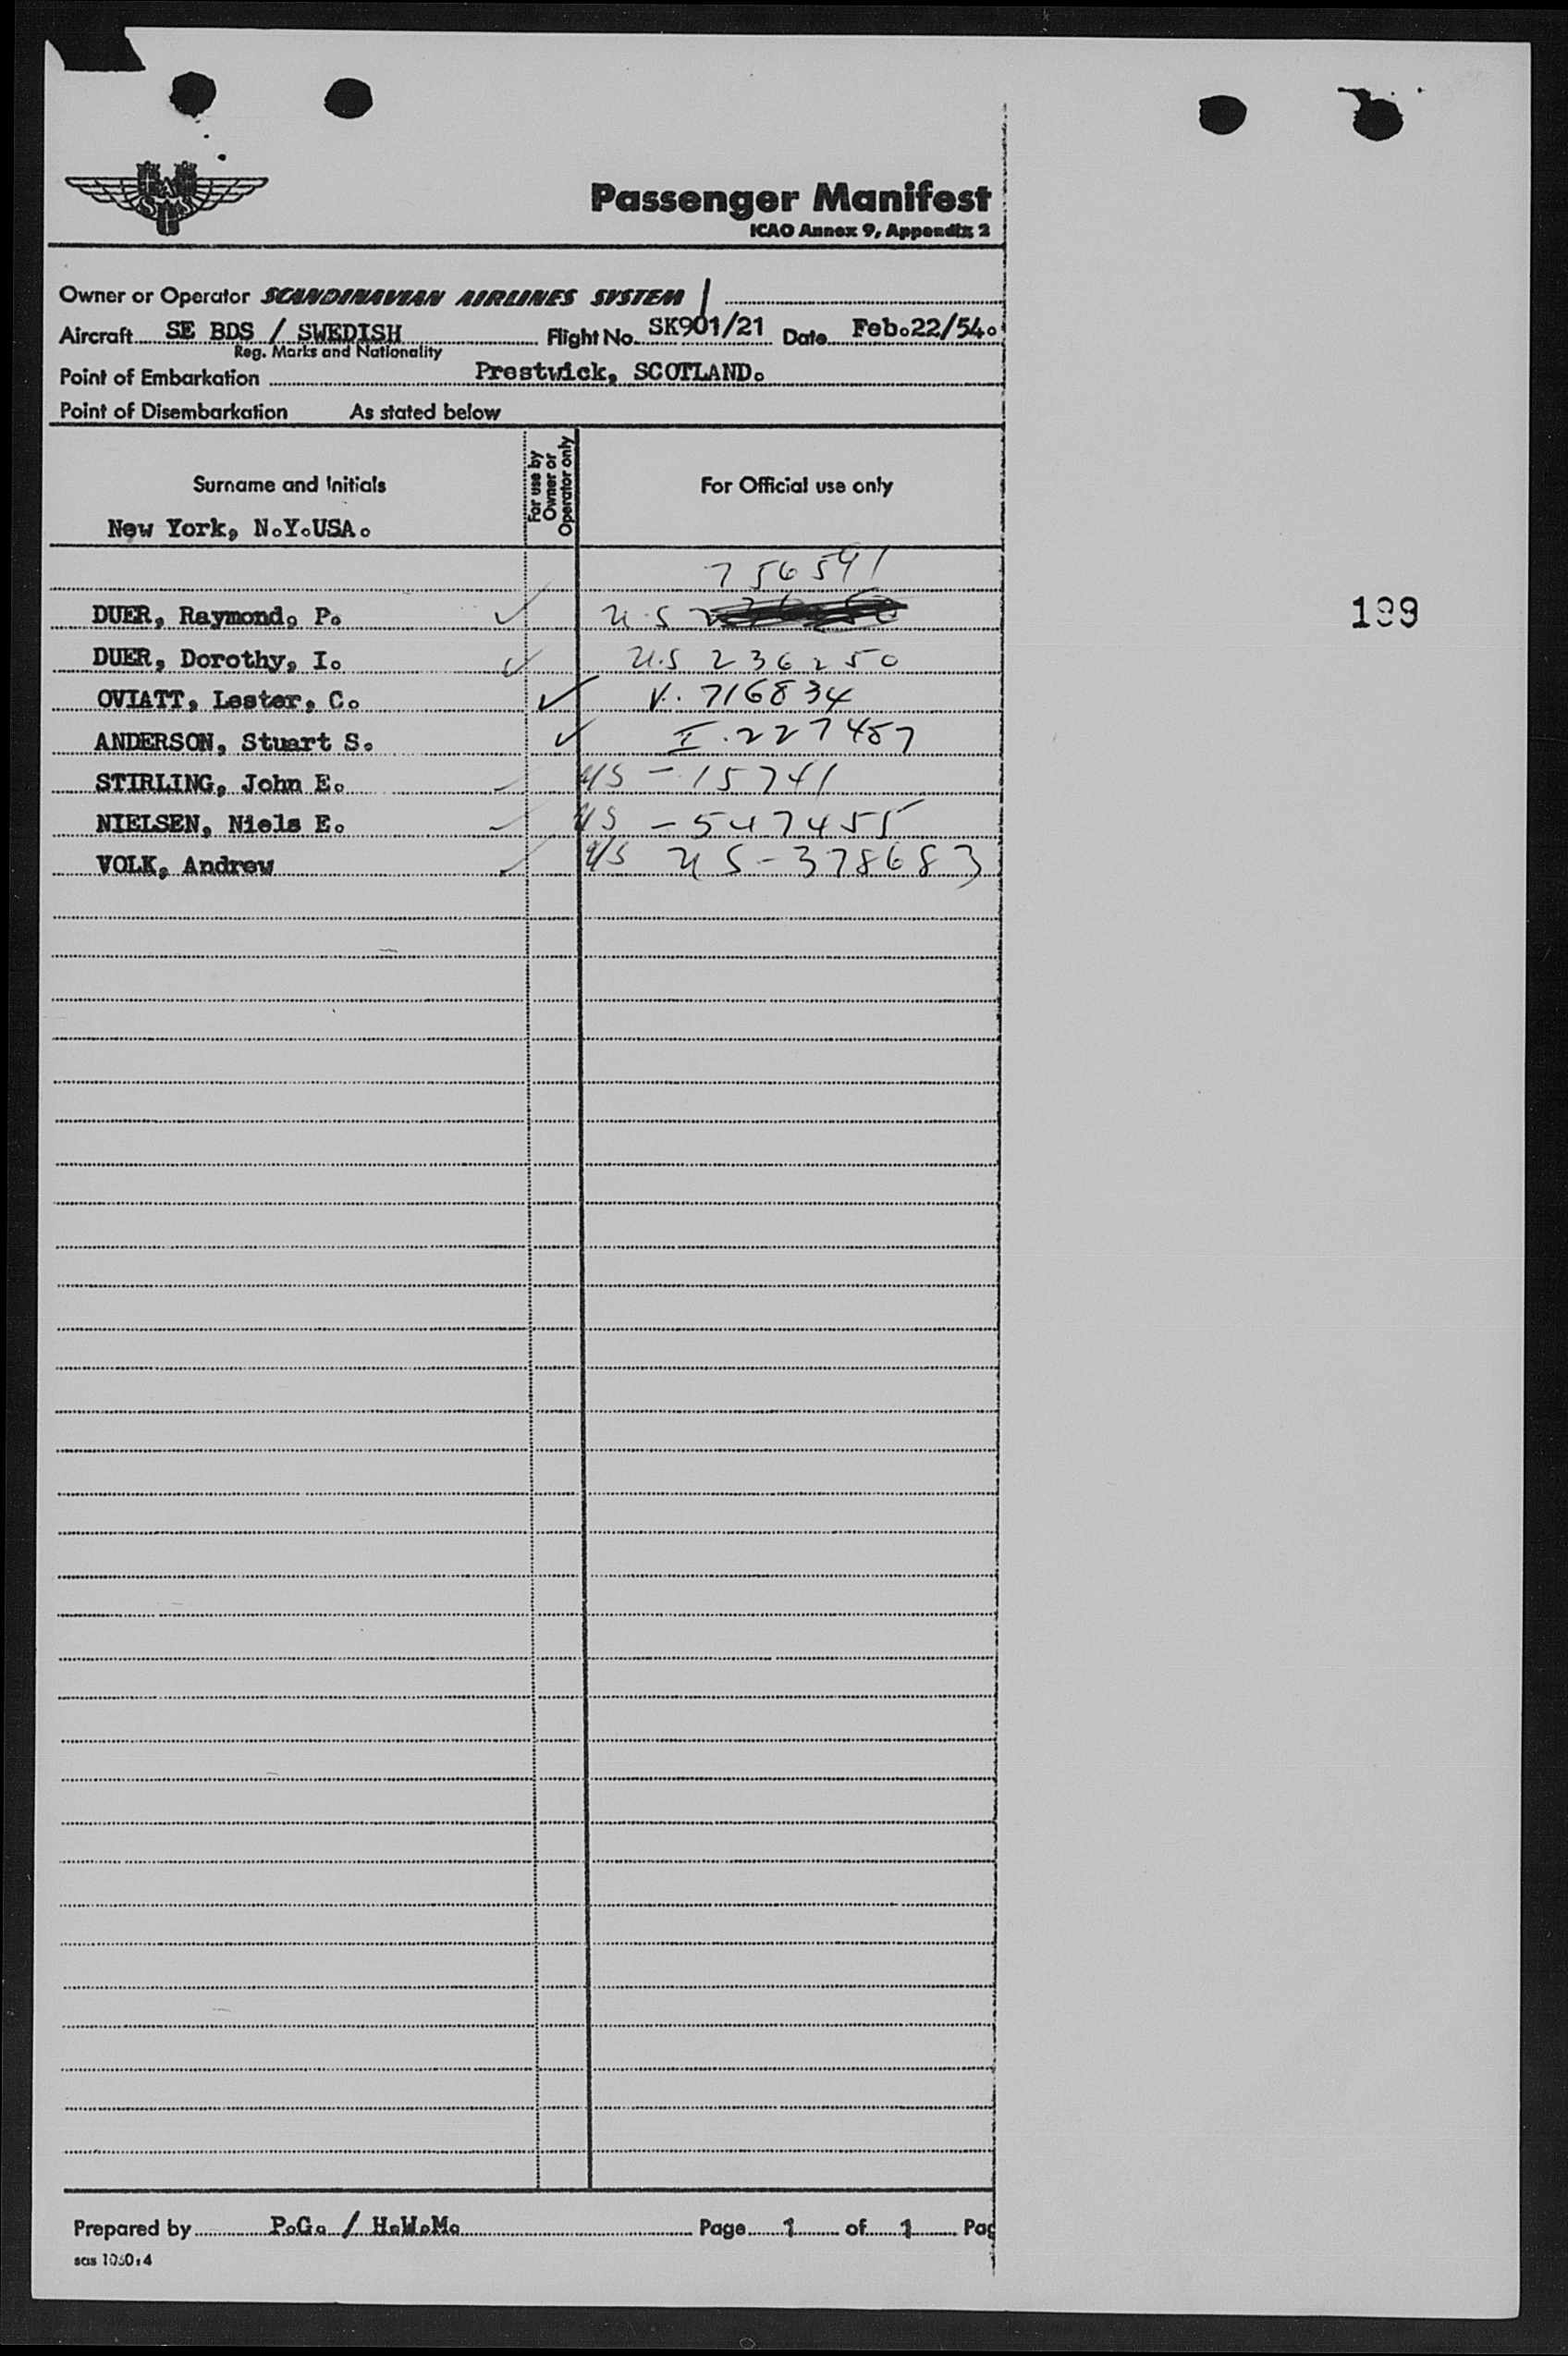 Passenger Manifest
ICAO Annex 9, Appendix 2
Owner or Operator SCANDINAVIAN AIRLINES SYSTEM
Aircraft SE BDS / SWEDISH Flight No. SK901/21 Date Feb.22/54.
Reg. Marks and Nationality
Point of Embarkation Prestwick, SCOTLAND.
Point of Disembarkation As stated below
Surname and Initials For use by Owner or Operator only For Official use only
New York, N.Y.USA.
756591
DUER, Raymond, P. U.S
199
DUER, Dorothy, I. U.S 236250
OVIATT, Lester, C. V. 716834
ANDERSON, Stuart S. I. 227487
STIRLING, John E. US - 15741
NIELSEN, Niels E. US - 547455
VOLK, Andrew US US - 378683
Prepared by P.G. / H.W.M. Page 1 of 1 Pag
sas 1050:4